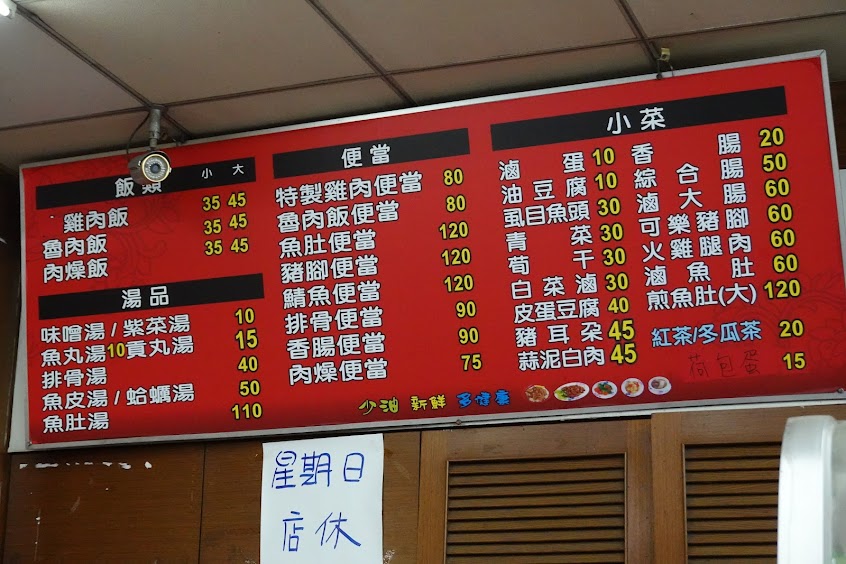 飯類 小 大
雞肉飯 35 45
魯肉飯 35 45
肉燥飯 35 45
湯品
味噌湯/紫菜湯 10
魚丸湯10貢丸湯 15
排骨湯 40
魚皮湯/蛤蠣湯 50
魚肚湯 110
便當
特製雞肉便當 80
魯肉飯便當 80
魚肚便當 120
豬腳便當 120
鯖魚便當 120
排骨便當 90
香腸便當 90
肉燥便當 75
小菜
滷蛋 10
油豆腐 10
虱目魚頭 30
青菜 30
筍干 30
白菜滷 30
皮蛋豆腐 40
豬耳朵 45
蒜泥白肉 45
香腸 20
綜合腸 50
滷大腸 60
可樂豬腳 60
火雞腿肉 60
滷魚肚 60
煎魚肚(大) 120
紅茶/冬瓜茶 20
荷包蛋 15
少油 新鮮 多健康
星期日
店休